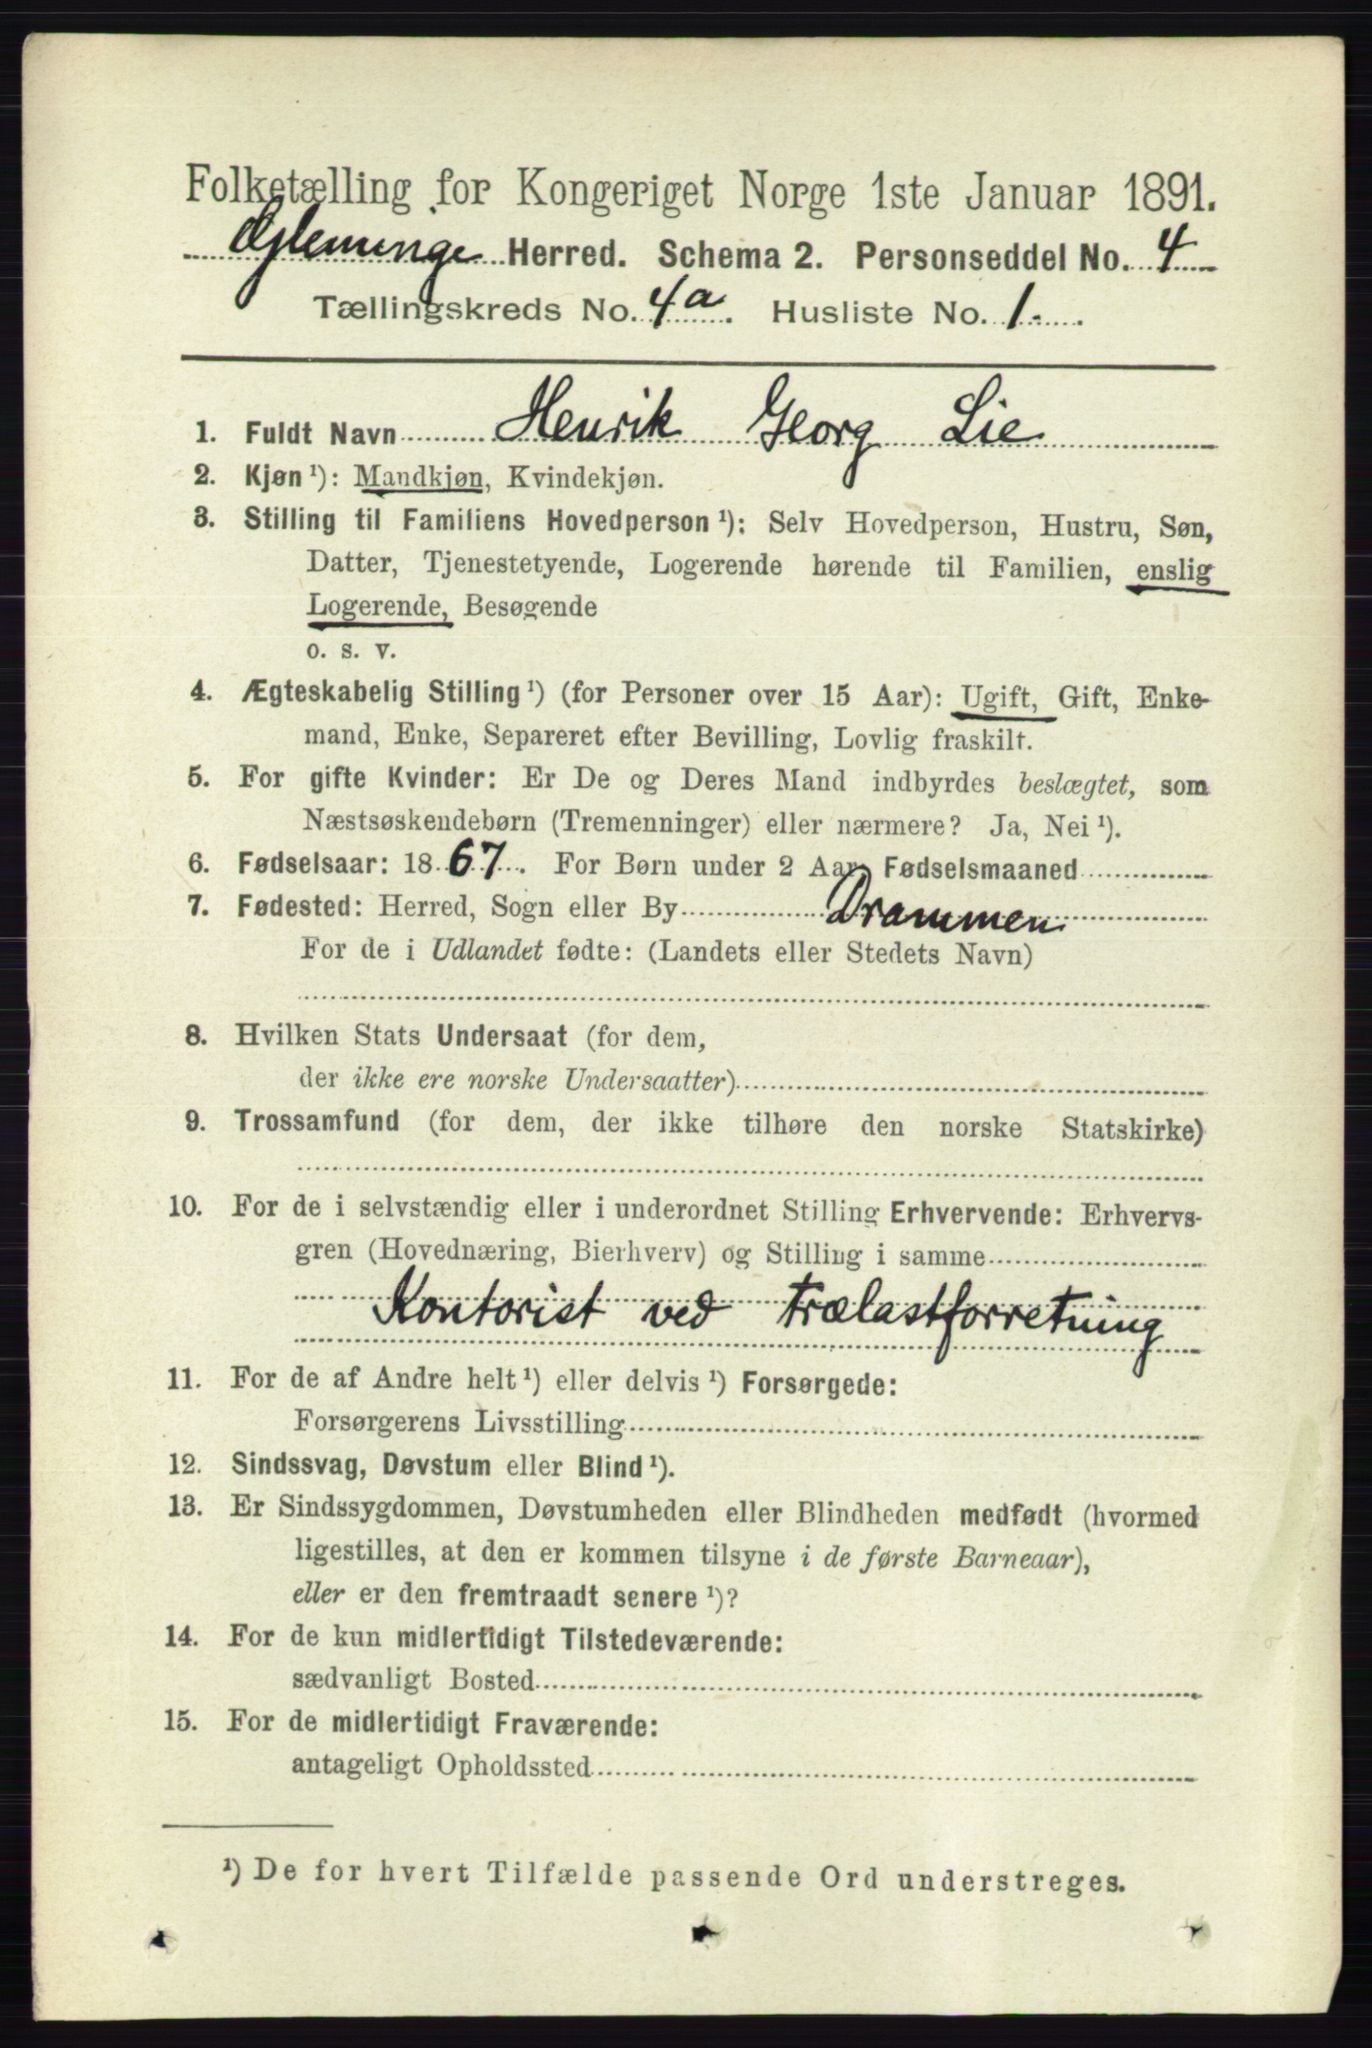 Folketælling for Kongeriget Norge 1ste Januar 1891.
Glemminge Herred. Schema 2. Personseddel No. 4
Tællingskreds No. 4a. Husliste No. 1.
1. Fuldt Navn Henrik Georg Lie
2. Kjøn ¹): Mandkjøn, Kvindekjøn.
3. Stilling til Familiens Hovedperson ¹): Selv Hovedperson, Hustru, Søn,
Datter, Tjenestetyende, Logerende hørende til Familien, enslig
Logerende, Besøgende
o. s. v.
4. Ægteskabelig Stilling ¹) (for Personer over 15 Aar): Ugift, Gift, Enke-
mand, Enke, Separeret efter Bevilling, Lovlig fraskilt.
5. For gifte Kvinder: Er De og Deres Mand indbyrdes beslægtet, som
Næstsøskendebørn (Tremenninger) eller nærmere? Ja, Nei ¹).
6. Fødselsaar: 1867. For Børn under 2 Aar, Fødselsmaaned
7. Fødested: Herred, Sogn eller By Drammen
For de i Udlandet fødte: (Landets eller Stedets Navn)
8. Hvilken Stats Undersaat (for dem,
der ikke ere norske Undersaatter)
9. Trossamfund (for dem, der ikke tilhøre den norske Statskirke)
10. For de i selvstændig eller i underordnet Stilling Erhvervende: Erhvervs-
gren (Hovednæring, Bierhverv) og Stilling i samme
Kontorist ved trælastforretning
11. For de af Andre helt ¹) eller delvis ¹) Forsørgede:
Forsørgerens Livsstilling
12. Sindssvag, Døvstum eller Blind ¹).
13. Er Sindssygdommen, Døvstumheden eller Blindheden medfødt (hvormed
ligestilles, at den er kommen tilsyne i de første Barneaar),
eller er den fremtraadt senere ¹)?
14. For de kun midlertidigt Tilstedeværende:
sædvanligt Bosted
15. For de midlertidigt Fraværende:
antageligt Opholdssted
¹) De for hvert Tilfælde passende Ord understreges.